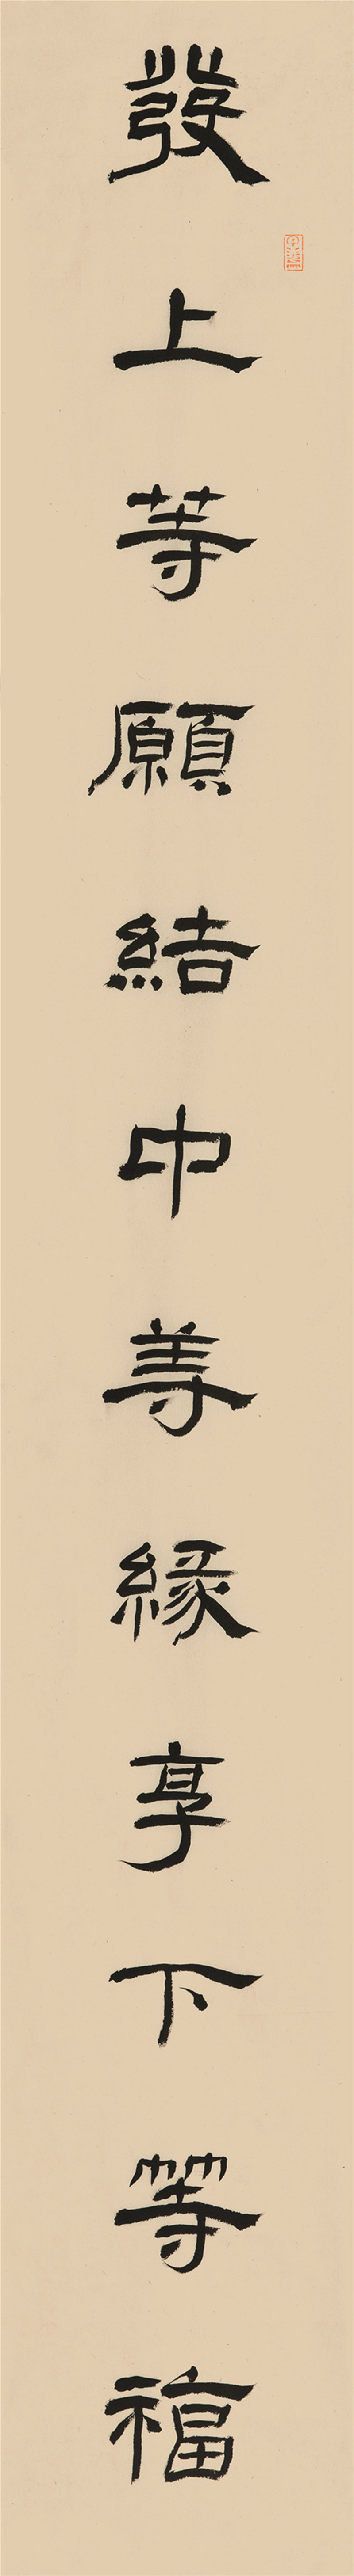 發上等願結中等緣享下等福